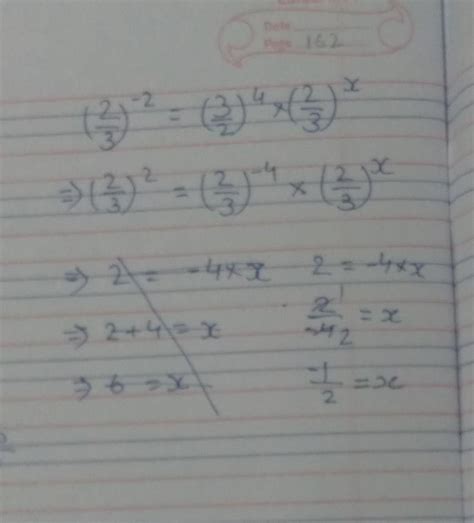 Date
Page 162
(2/3)^-2 = (3/2)^4 × (2/3)^x
⇒ (2/3)^2 = (2/3)^-4 × (2/3)^x
⇒ 2 = -4 × x
⇒ 2 + 4 = x
⇒ 6 = x
2 = -4 × x
2 1 / -4 2 = x
-1/2 = x